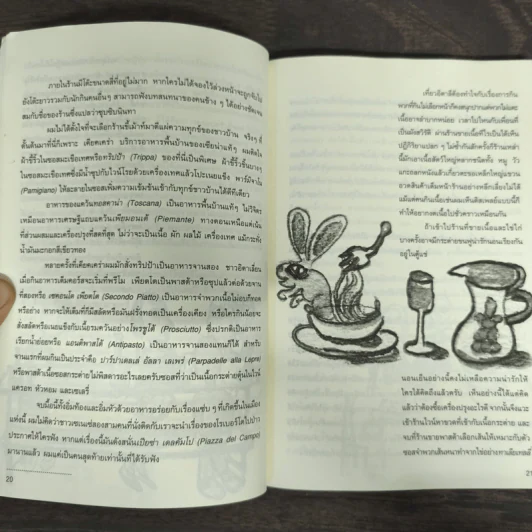 ภายในร้านมีโต๊ะขนาดสี่ที่อยู่ไม่มาก หากใครไม่ได้จองไว้ล่วงหน้าจะถูกจับไป
ยังโต๊ะยาวรวมกับนักกินคนอื่นๆ สามารถฟังบทสนทนาของคนข้าง ๆ ได้อย่างชัดเจน
สมกับชื่อของร้านซึ่งแปลว่าซุบซิบนินทา
ผมไม่ได้ตั้งใจที่จะเลือกร้านขี้เม้าท์มาตีแผ่ความทุกข์ของชาวบ้าน จริงๆ
ตื้นตันมาที่นี่ก็เพราะ เดียคเคร่า บริการอาหารพื้นบ้านของเซียน่าแท้ๆ ผมติดใจ
ผ้าขี้ริ้วในซอสมะเขือเทศหรือทริปป้า (Trippa) ของที่นี่เป็นพิเศษ ผ้าขี้ริ้วชิ้นยาวๆ
ในซอสมะเขือเทศซึ่งมีน้ำซุปกับไวน์โรยด้วยเครื่องเทศแล้วโปะเนยแข็ง
(Pamigiano) ให้ละลายในซอสเพิ่มความเข้มข้นเข้ากับทุกข์ชาวบ้านได้ดีทีเดียว
อาหารของแคว้นทอสคาน่า (Toscana) เป็นอาหารพื้นบ้านแท้ๆ ไม่วิจิตร
เหมือนอาหารเศรษฐีแถบแคว้นเพียมอนเต้ (Piemante) ทางตอนเหนือแต่เน้น
ที่ส่วนผสมและเครื่องปรุงที่สดที่สุด ไม่ว่าจะเป็นเนื้อ ผัก ผลไม้ เครื่องเทศ แม้กระทั่ง
น้ำมันมะกอกสีเขียวทอง
หลายครั้งที่เดียคเคร่าผมมักสั่งทริปป้าเป็นอาหารจานสอง ชาวอิตาเลี่ยน
เมื่อกินอาหารเต็มคอร์สจะเริ่มที่พรีโม เพียตโตเป็นพาสต้าหรือซุปแล้วต่อด้วยจาน
ที่สองหรือ เซคอนโด เพียตโต (Secondo Piatto) เป็นอาหารจำพวกเนื้ออบทอด
หรือย่าง หากจะให้เต็มที่ก็มีสลัดหรือมันฝรั่งทอดเป็นเครื่องเคียง หรือใครกินน้อยจะ
สั่งสลัดหรือเนยแข็งกับเนื้อรมควันอย่างโพรชูโต้ (Prosciutto) ซึ่งปรกติเป็นอาหาร
เรียกน้ำย่อยหรือ แอนติพาสโต้ (Antipasto) เป็นอาหารจานสองแทนก็ได้ สำหรับ
จานแรกที่ผมกินเป็นประจำคือ ปาร์ปาเดลเล่ อัลลา เลเพร่ (Parpadelle alla Lepre)
หรือพาสต้าเนื้อซอสกระต่าย ไม่พิสดารอะไรเลยครับซอสที่ว่าเป็นเนื้อกระต่ายตุ๋นในไวน์
แครอท หัวหอม และเซเลรี่
จบมื้อนี้ทั้งอิ่มท้องและอิ่มหัวด้วยอาหารอร่อยกับเรื่องแซ่บ ๆ ที่เกิดขึ้นในเมือง
แห่งนี้ ผมไม่คิดว่าชาวเซเนเซ่สองสามคนที่นั่งติดกับเราจะนำเรื่องของโรเบอร์โตไปป่าว
ประกาศให้ใครฟัง หากแต่เรื่องนี้มันดังสนั่นเปียซ่า เดลคัมโป (Piazza del Campo)
มานานแล้ว ผมแค่เป็นคนสุดท้ายเท่านั้นที่ได้รับฟัง
20
เที่ยวอิตาลีต้องทำใจกับเรื่องการกิน
เนื้ออาจลำบากหน่อย เวลาไปไหนกับเพื่อนที่
เป็นมังสวิรัติ ผ่านร้านขายเนื้อทีไรเป็นได้เห็น
ปฏิกิริยาแปลก ๆ ไม่ซ้ำกันสักครั้งก็ร้านเหล่า
นี้มักเอาเนื้อสัตว์ใหญ่หลากชนิดทั้ง หมู วัว
แกะถลกหนังแล้วเกี่ยวตะขอเหล็กแขวน
อวดสินค้าเต็มหน้าร้านอย่างหลีกเลี่ยงไม่ได้
แม้แต่คนกินเนื้อเช่นผมเห็นติดๆ
ทำให้อยากงดเนื้อไปชั่วคราวเหมือนกัน
ถ้าเข้าไปร้านที่ขายเนื้อและไข่ไก่
บางครั้งอาจมีกระต่ายขนฟูน่ารักนอนเรียงกัน
อยู่ในตู้แช่
นอนเย็นอย่างนี้คงไม่เหลือความน่ารักให้
ใครได้คิดถึงแล้วครับ เห็นอย่างนี้ได้แค่คิด
แล้วว่าต้องซื้อเครื่องปรุงอะไรดี จากนั้นจึงแวะ
เข้าร้านไวน์หาขวดที่เข้ากับเนื้อกระต่าย และ
จบที่ร้านขายพาสต้าเลือกเส้นให้เหมาะกับตัว
21